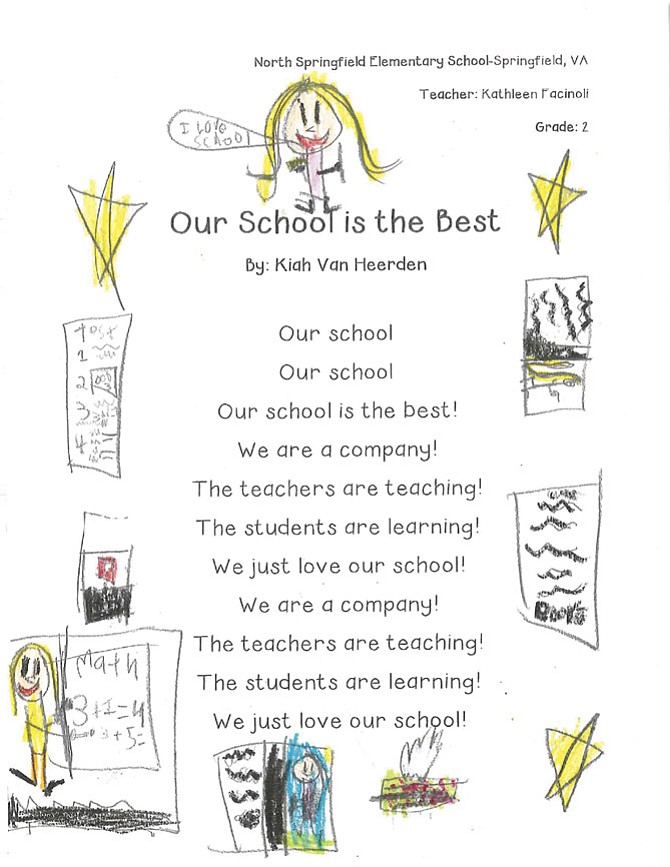 North Springfield Elementary School-Springfield, VA
Teacher: Kathleen Facinoli
Grade: 2
I LOVE
SCHOOL
Our School is the Best
By: Kiah Van Heerden
Our school
Our school
Our school is the best!
We are a company!
The teachers are teaching!
The students are learning!
We just love our school!
We are a company!
The teachers are teaching!
The students are learning!
We just love our school!
1
2
3
4
Math
3+1=4
3+5=